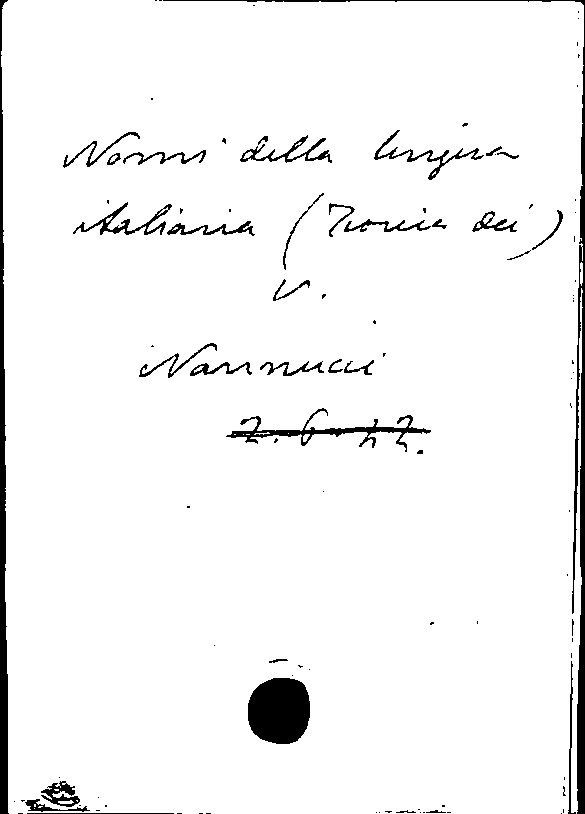 Nomi della lingua
italiana (Teorica dei)
v.
Nannucci
2. 6. 22.